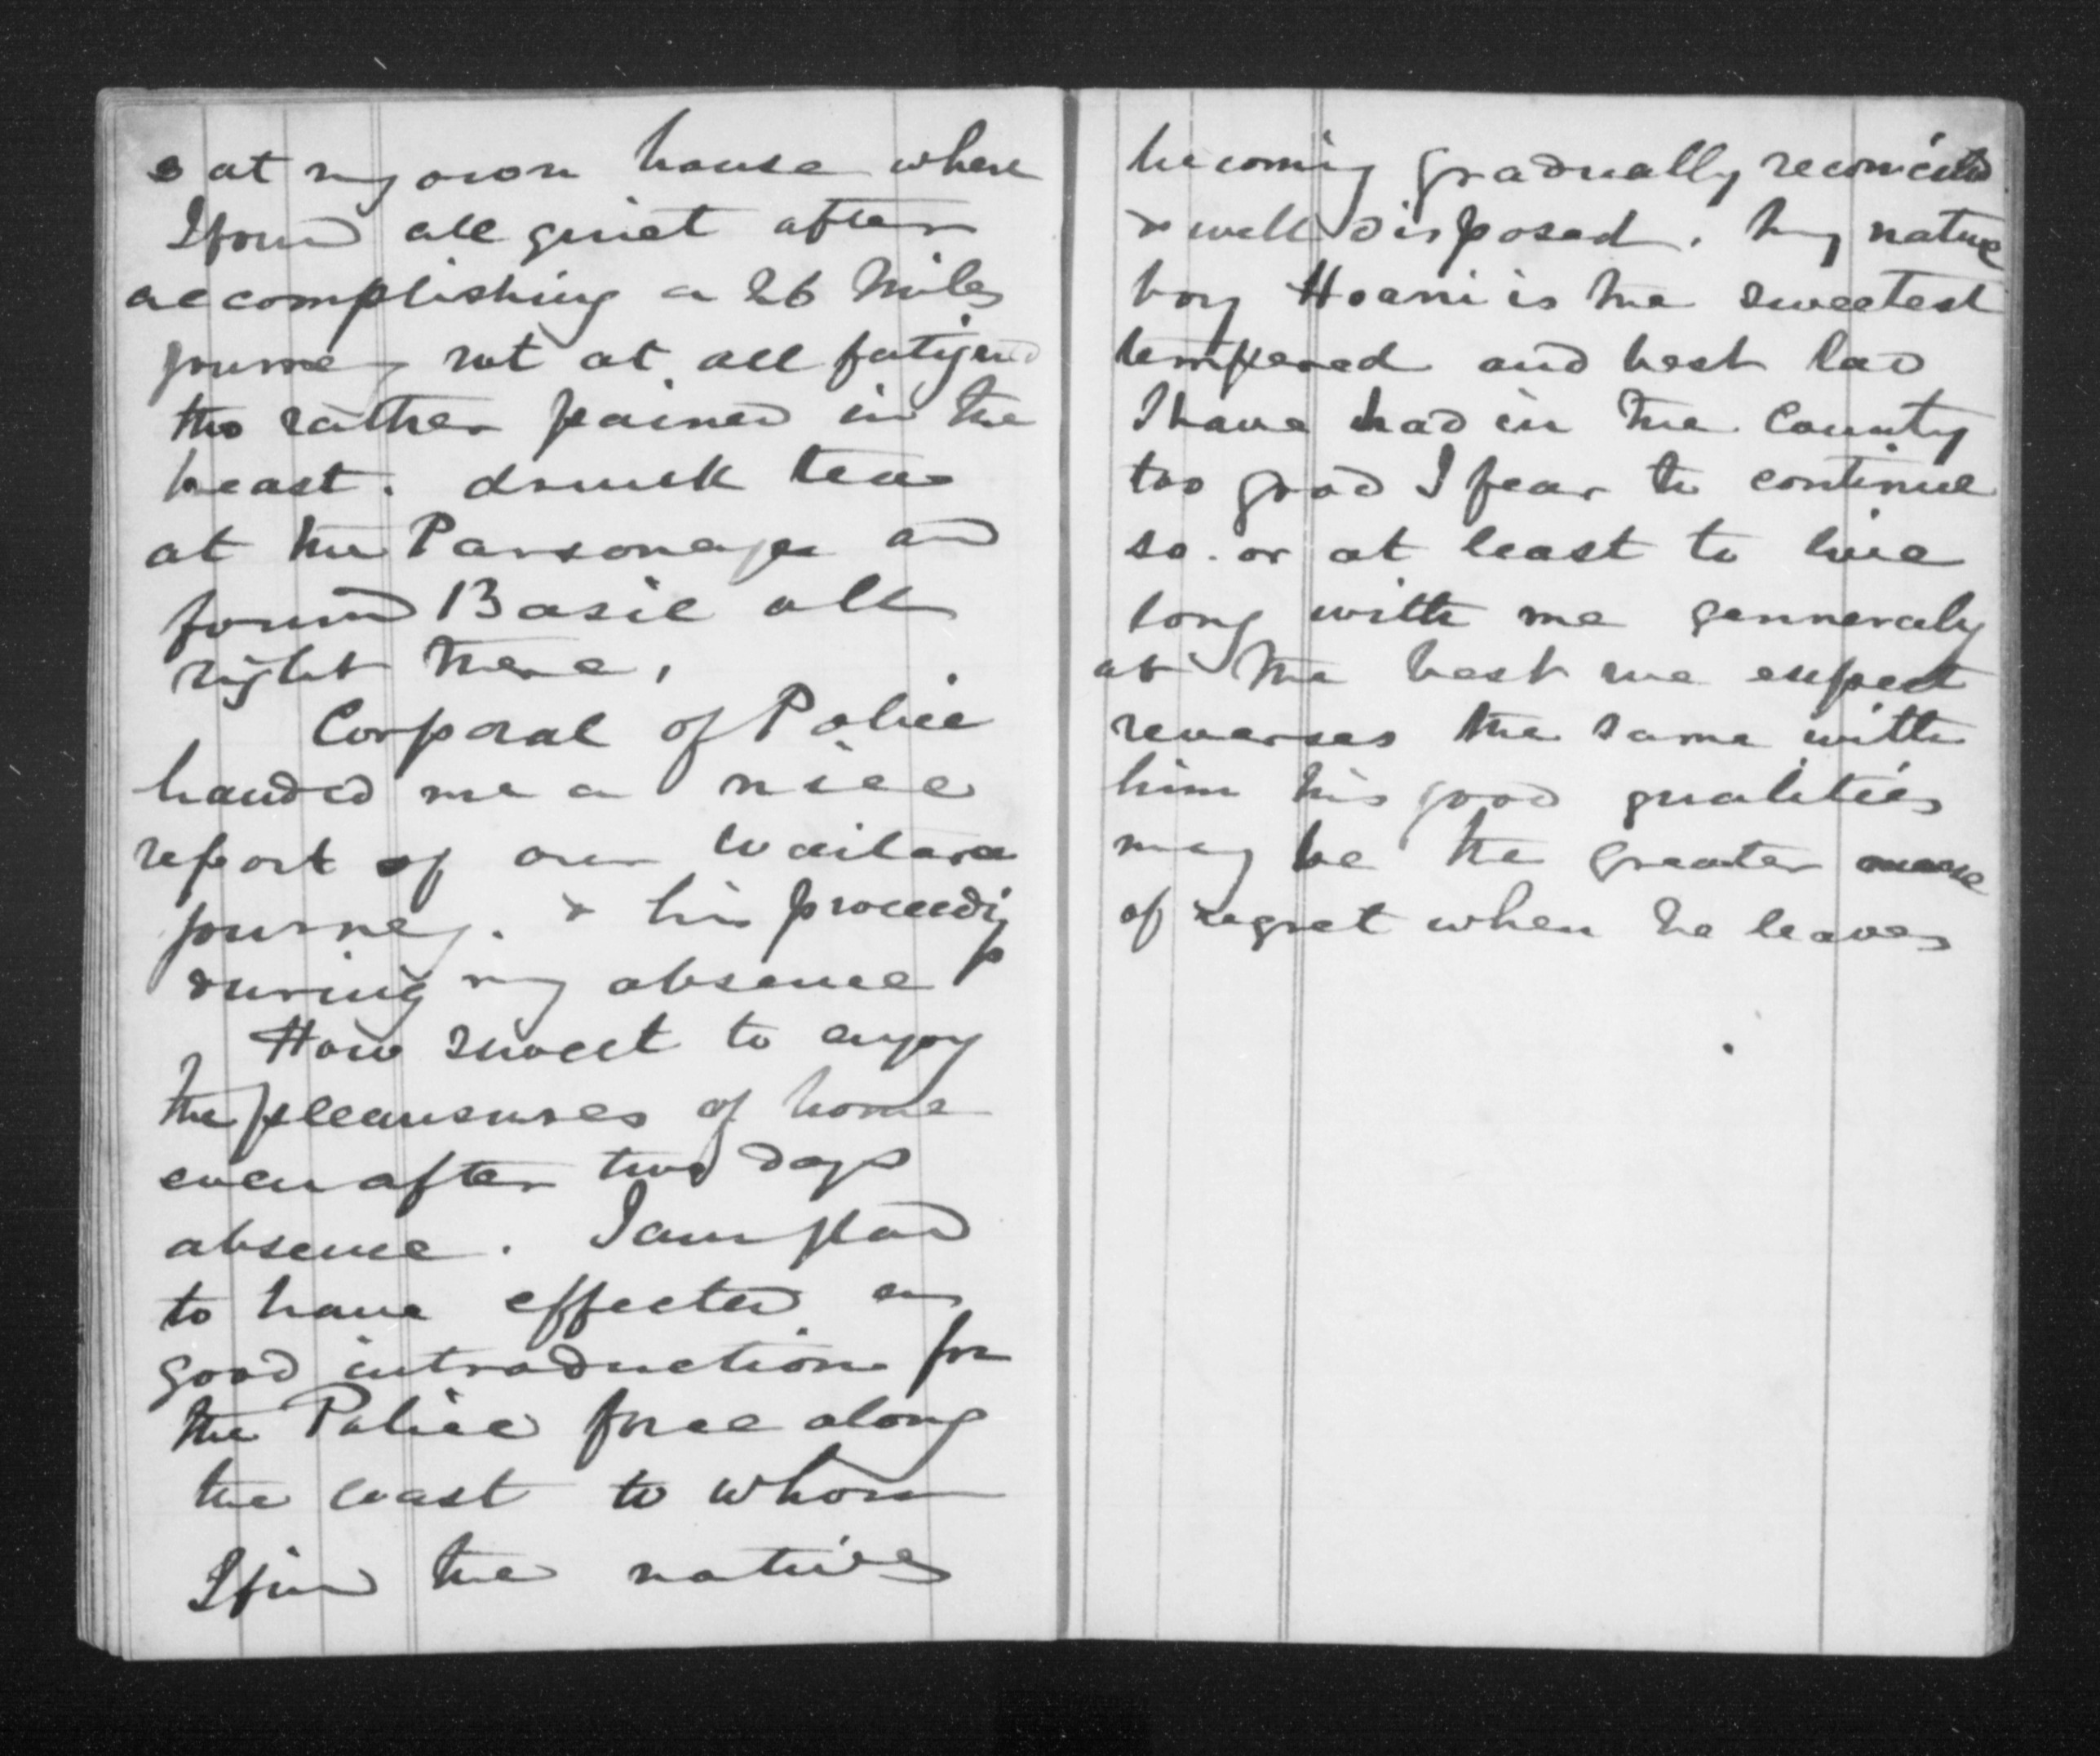 & at my own house where
I found all quiet after
accomplishing a 26 Miles
journey not at all fatigued
tho rather pained in the
breast. drank tea
at the Parsonage and
found Basil all
right there,
Corporal of Police
handed me a nice
report of our Waitara
journey. & his proceedings
during my absence
How sweet to enjoy
the pleausures of home
even after two days
absence. I am glad
to have effected a
good introduction for
the Police force along
the coast to whom
I find the natives
becoming gradually reconciled
& well disposed. My native
boy Hoani is the sweetest
tempered and best lad
I have had in the County
too good I fear to continue
so. or at least to live
long with me genneraly
at the best we expect
reverses the same with
him his good qualities
may be the greater cause
of regret when he leaves